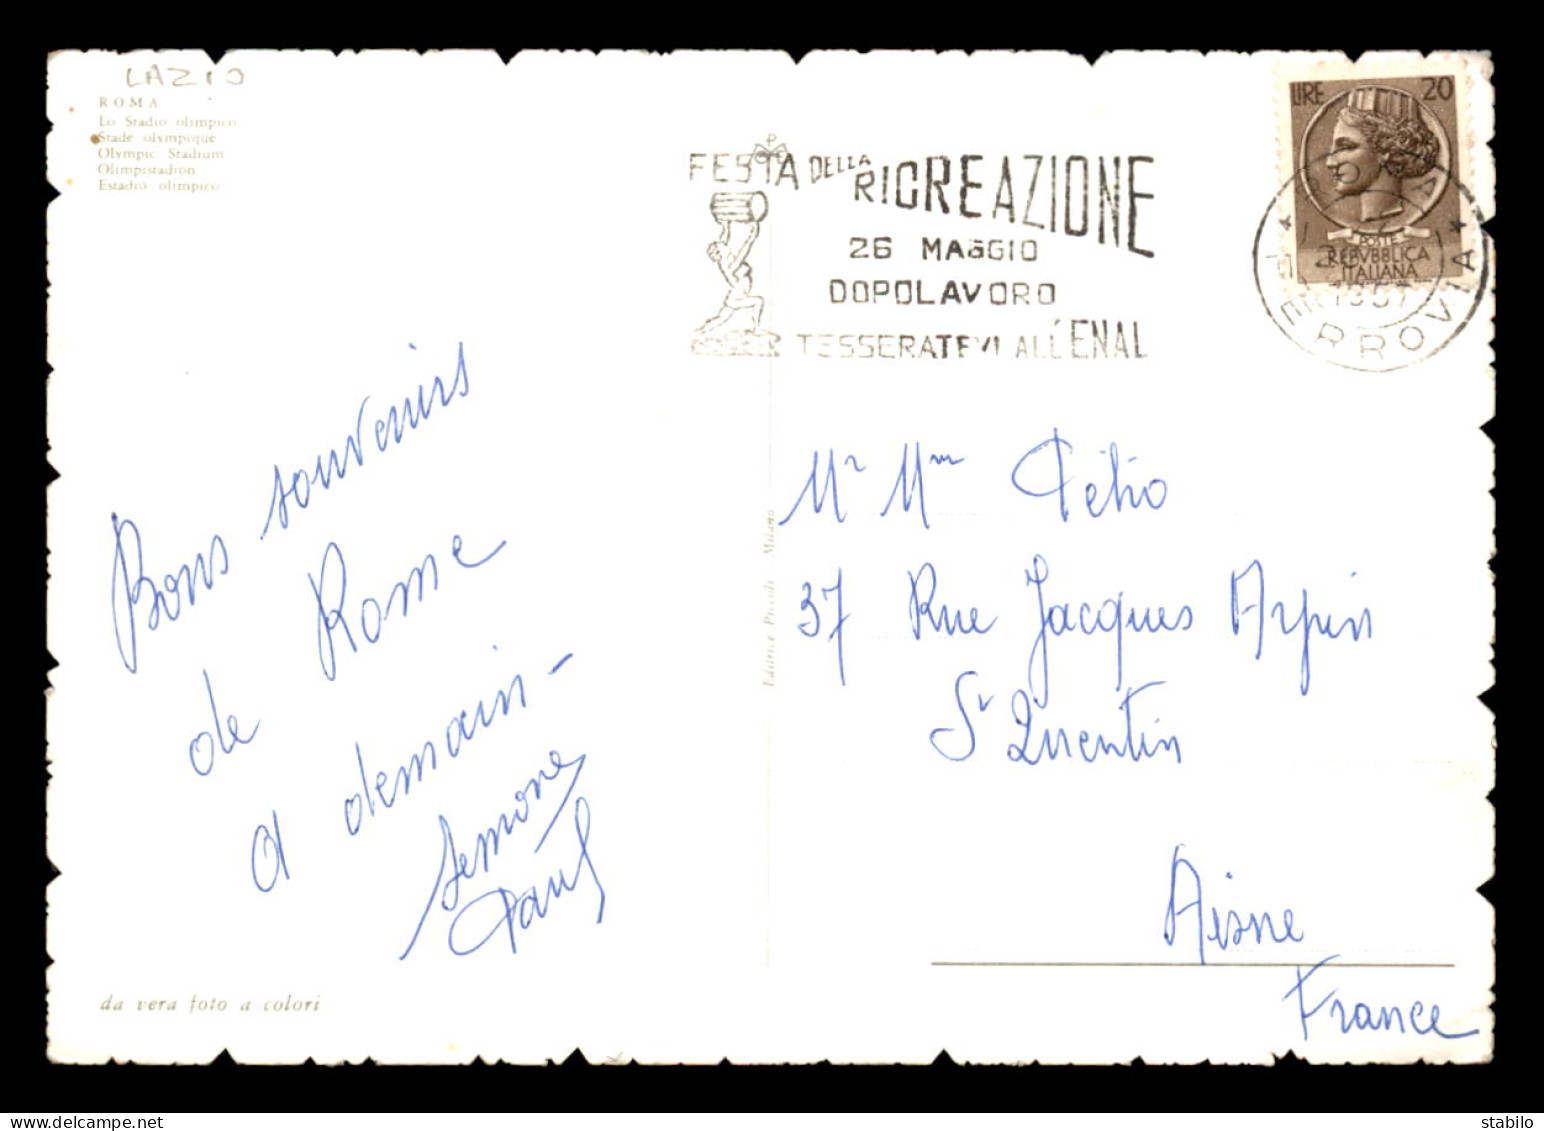 LAZIO
ROMA
Lo Stadio olimpico
Stade olympique
Olympic Stadium
Olimpistadion
Estadio olimpico
FESTA DELLA RICREAZIONE
26 MAGGIO
DOPOLAVORO
TESSERATEVI ALL'ENAL
LIRE 20
POSTE
REPVBBLICA
ITALIANA
1957
FERROVIA
Bons souvenirs
de Rome
a demain -
Simone
Paul
Editrice Piccoli - Milano
Mr Mme
37 Rue Jacques Arpin
St Quentin
Aisne
France
da vera foto a colori
stalbo - delcampe.net